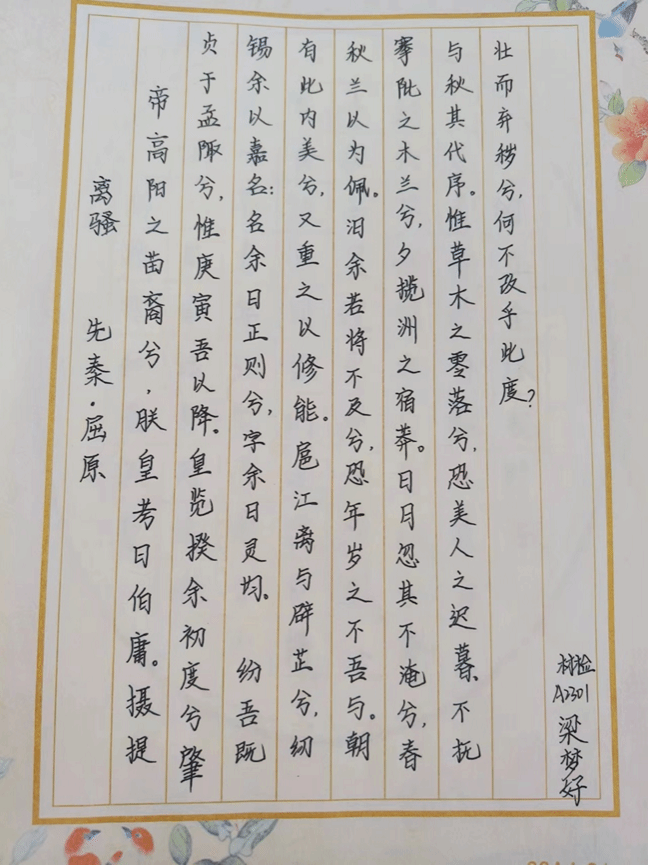 离骚 先秦·屈原
帝高阳之苗裔兮，朕皇考曰伯庸。摄提
贞于孟陬兮，惟庚寅吾以降。皇览揆余初度兮肇
锡余以嘉名：名余曰正则兮，字余曰灵均。 纷吾既
有此内美兮，又重之以修能。扈江离与辟芷兮，纫
秋兰以为佩。汩余若将不及兮，恐年岁之不吾与。朝
搴阰之木兰兮，夕揽洲之宿莽。日月忽其不淹兮，春
与秋其代序。惟草木之零落兮，恐美人之迟暮、不抚
壮而弃秽兮，何不改乎此度？
材检
A2301
梁梦好